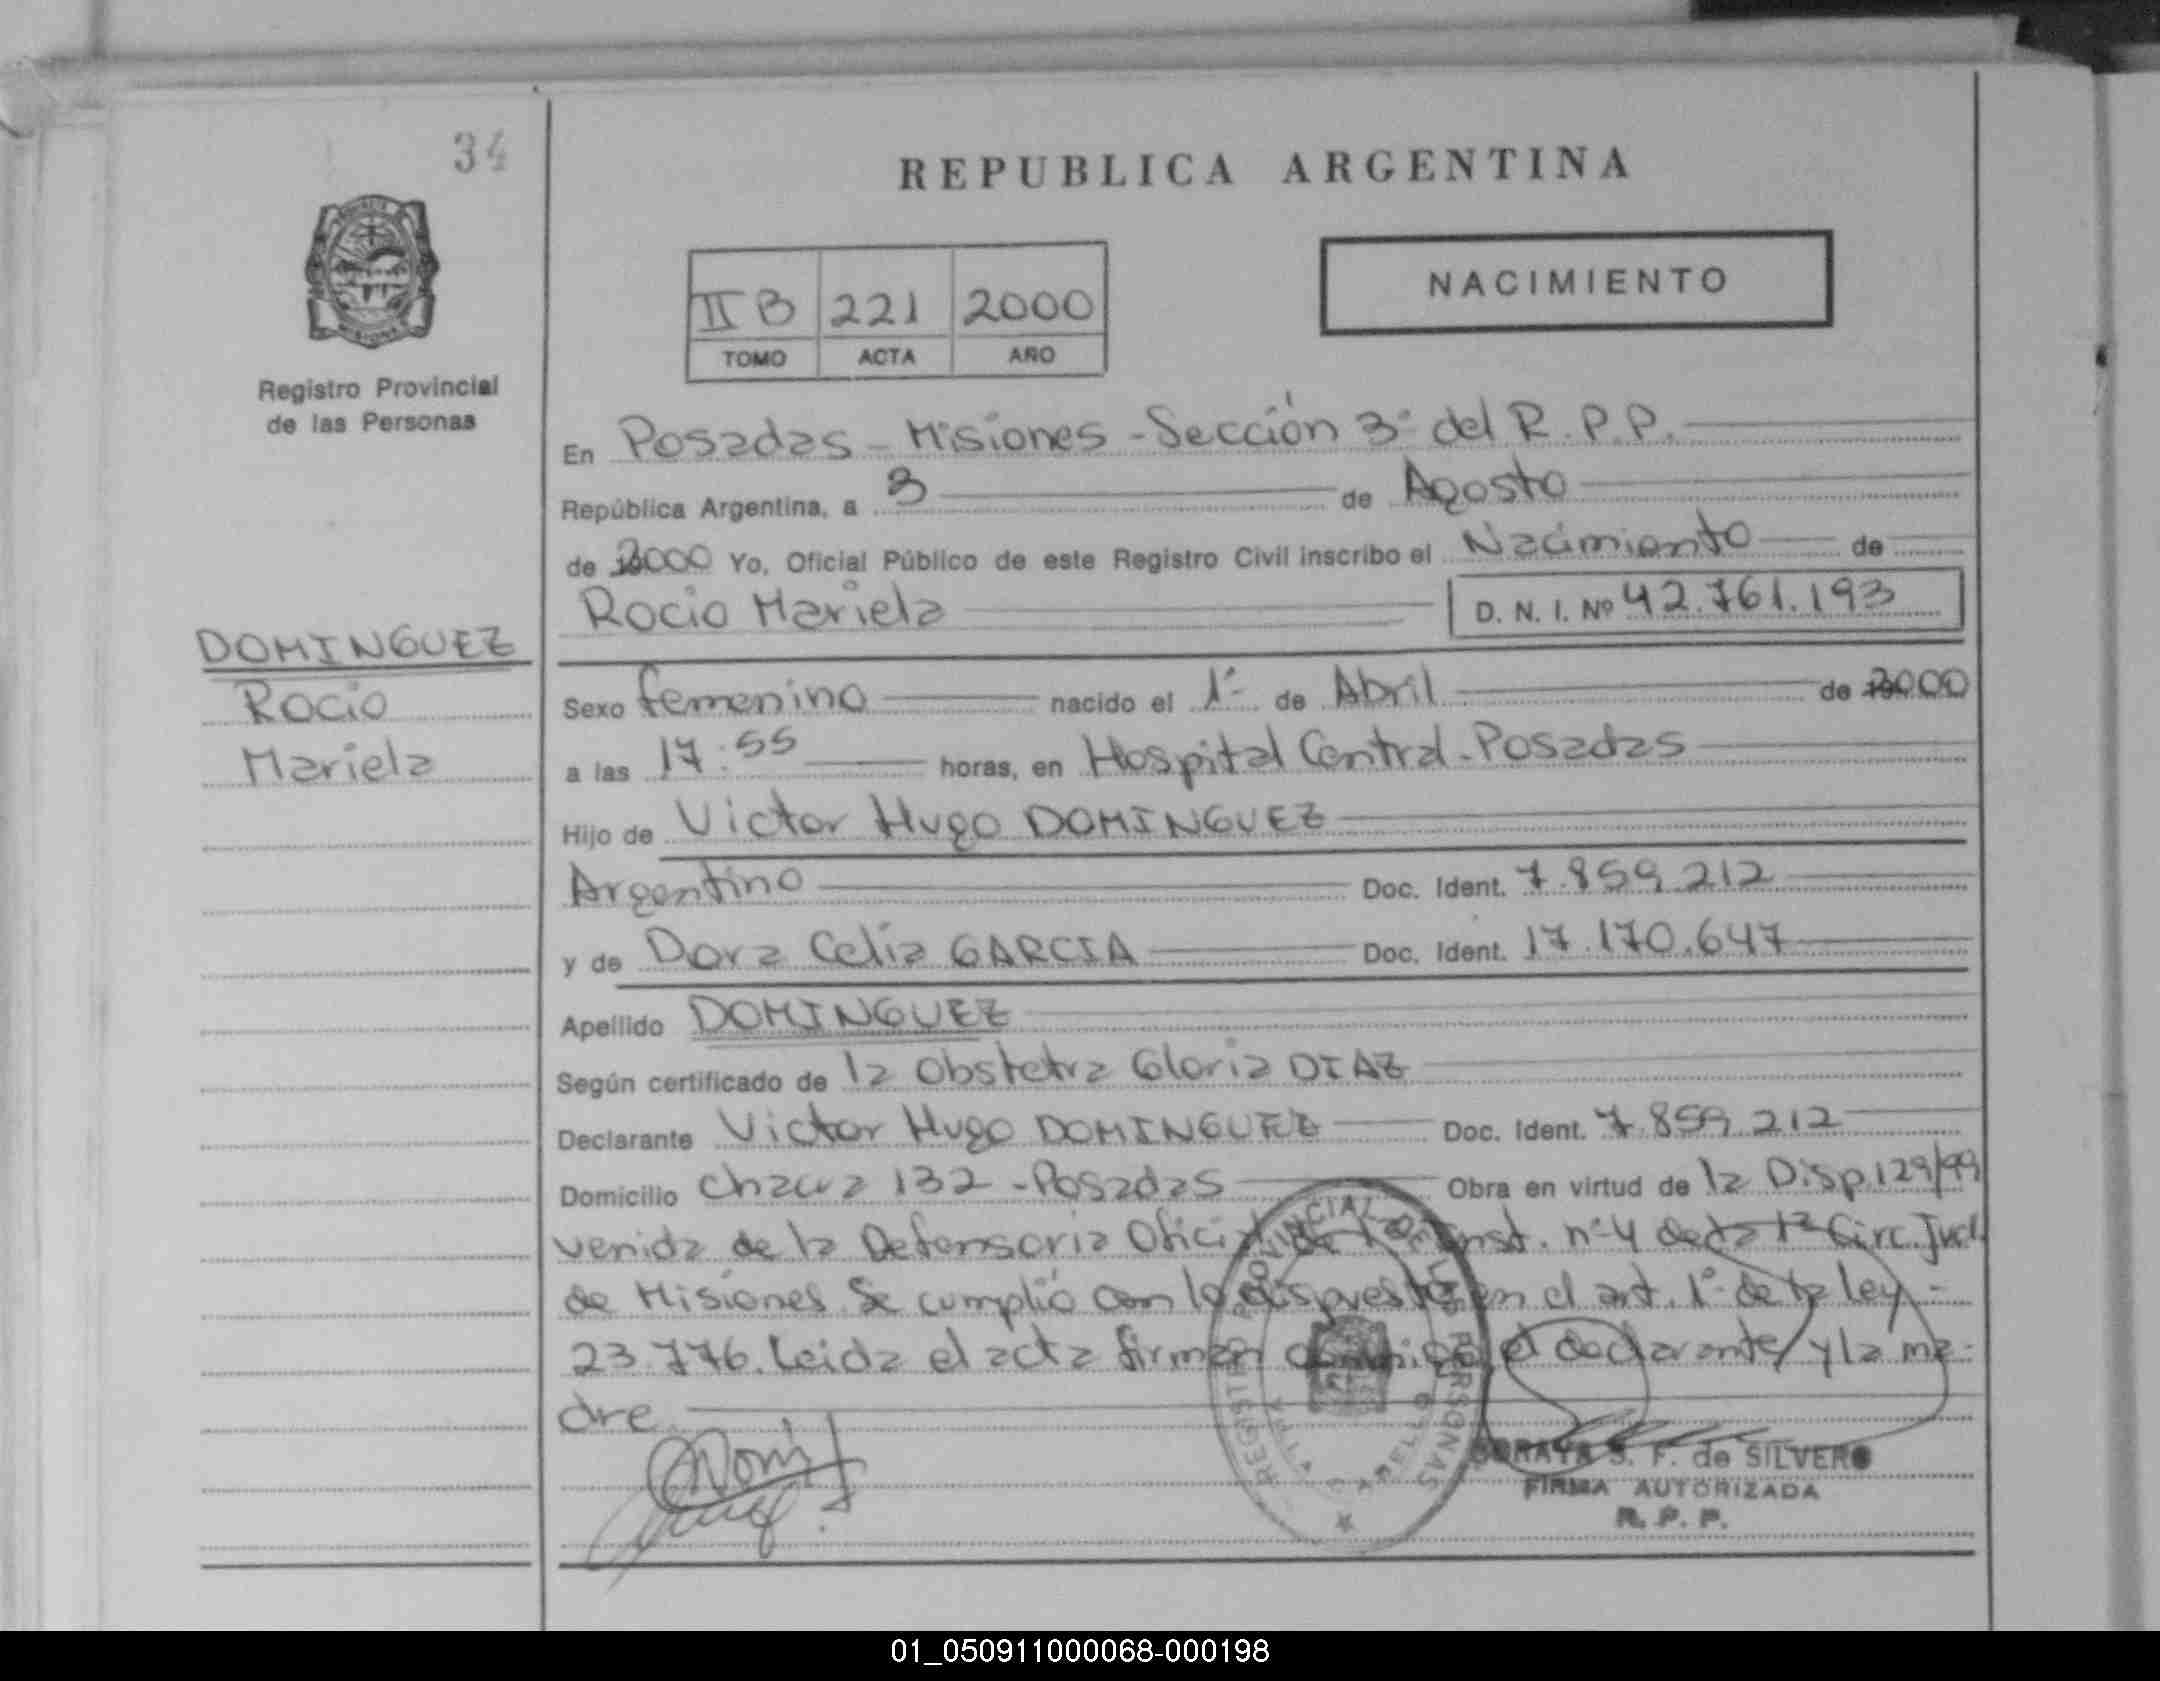 34
REPUBLICA ARGENTINA
NACIMIENTO
II B 221 2000
TOMO ACTA AÑO
Registro Provincial
de las Personas
En Posadas - Misiones - Sección 3° del R.P.P.
República Argentina, a 3 de Agosto
de 2000 Yo, Oficial Público de este Registro Civil inscribo el Nacimiento de
Rocio Mariela D. N. I. Nº 42.761.193
DOMINGUEZ
Rocio
Mariela
Sexo femenino nacido el 1° de Abril de 2000
a las 17:55 horas, en Hospital Central - Posadas
Hijo de Victor Hugo DOMINGUEZ
Argentino Doc. Ident. 7.859.212
y de Dora Celia GARCIA Doc. Ident. 17.170.647
Apellido DOMINGUEZ
Según certificado de la Obstetra Gloria DIAZ
Declarante Victor Hugo DOMINGUEZ Doc. Ident. 7.859.212
Domicilio 132 - Posadas Obra en virtud de la Disp. 129/99
venida de la Defensoria Oficial de Inst. n° 4 de la 1ª Circ. Jud.
de Misiones Se cumplió con lo dispuesto en el art. 1° de la ley -
23.776. Leida el acta firman conmigo el declarante y la ma-
dre.
REGISTRO PROVINCIAL DE LAS PERSONAS
SORAYA S. F. de SILVERO
FIRMA AUTORIZADA
R. P. P.
01_050911000068-000198